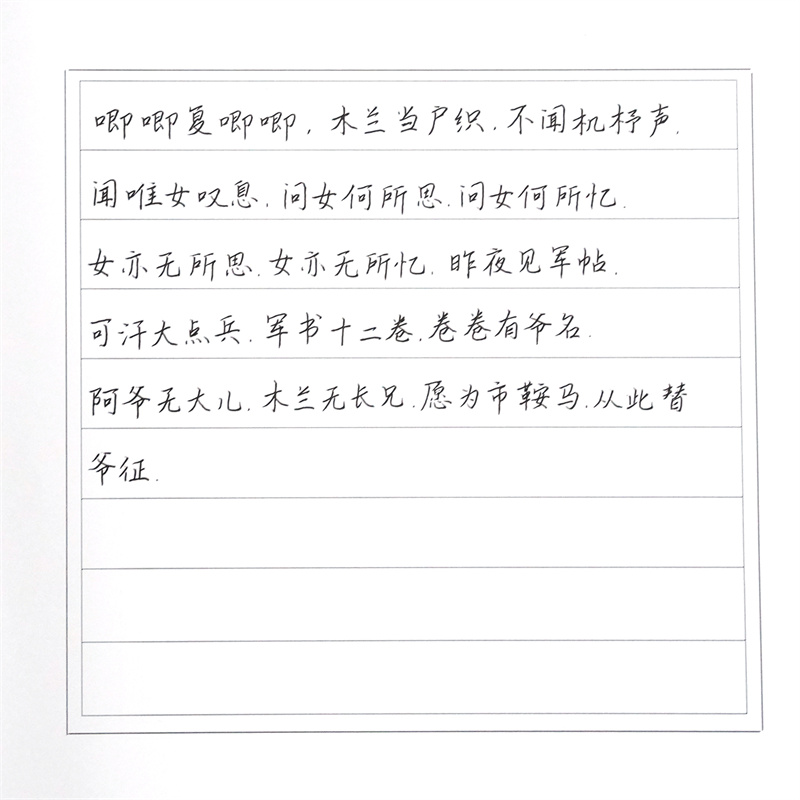 唧唧复唧唧,木兰当户织.不闻机杼声.
闻唯女叹息.问女何所思.问女何所忆.
女亦无所思.女亦无所忆.昨夜见军帖.
可汗大点兵.军书十二卷.卷卷有爷名.
阿爷无大儿.木兰无长兄.愿为市鞍马.从此替
爷征.